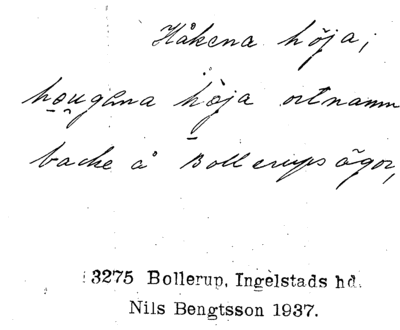 Håkena höja,
hougena höja ortnamn
backe å Bollerups ägor,
3275 Bollerup, Ingelstads hd.
Nils Bengtsson 1937.